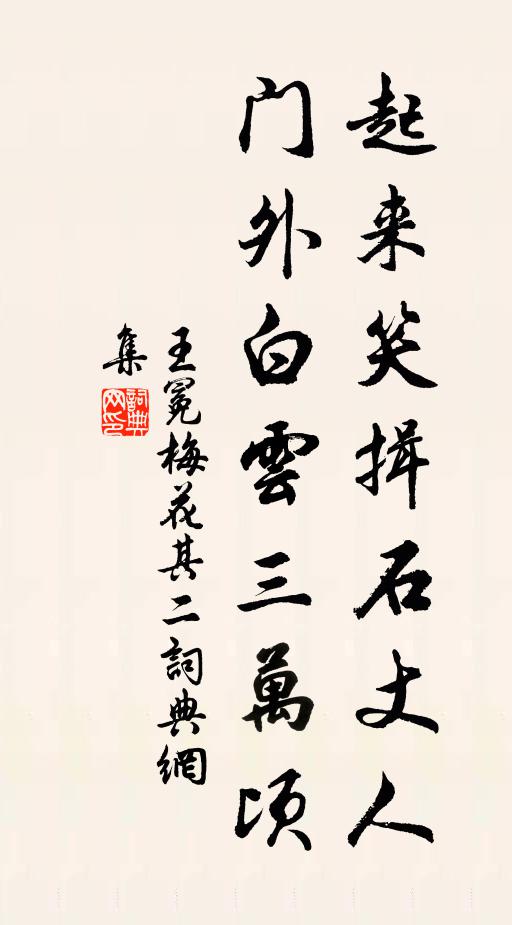 起来笑揖石丈人
门外白雲三萬頃
王冕梅花其二詞典網
集
詞典
网印